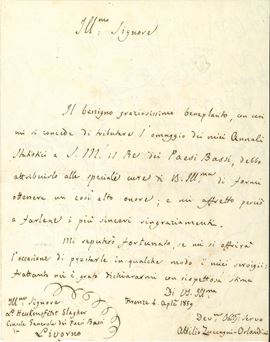 Ill.mo Signore
Il benigno graziosissimo beneplacito, con cui
mi si concede di tributare l'omaggio dei miei Annali
Statistici a S. M. il Re dei Paesi Bassi, debbo
attribuirlo alle speciali cure di V.S. Ill.ma di farmi
ottenere un così alto onore; e mi affretto perciò
a farlene i più sinceri ringraziamenti.
Mi reputerò fortunato, se mi si offrirà
l'occasione di prestarle in qualche modo i miei servigi;
frattanto mi è grato dichiararmi con rispettosa stima
Di V.S. Ill.ma
Firenze 4 Aple 1859
Ill.mo Signore
Console Generale dei Paesi Bassi
Livorno
Dev.mo Obb. Servo
Attilio Zuccagni-Orlandini